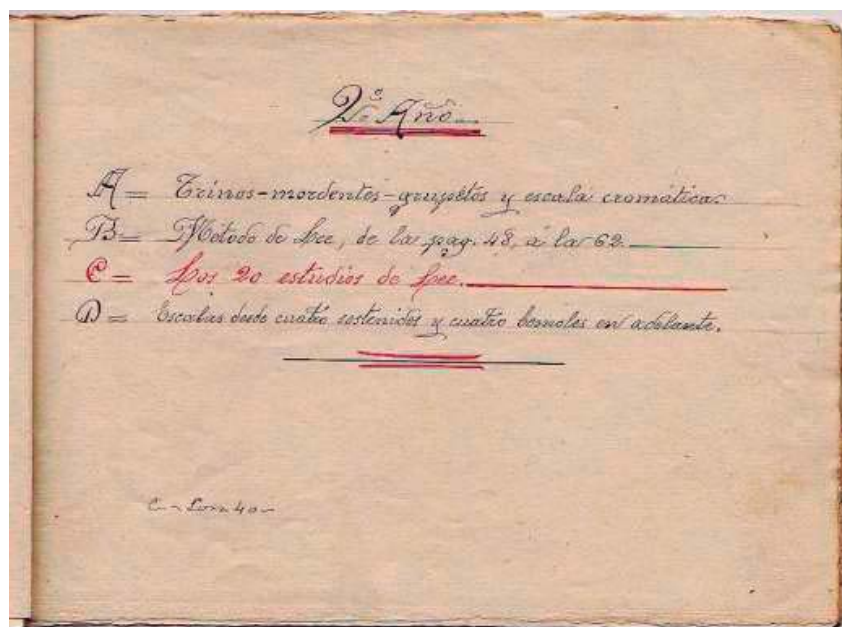 2º Año
A = Trinos-mordentes-grupetos y escala cromática.
B = Metodo de Lee, de la pag. 48, á la 62.
C = Los 20 estudios de Lee.
D = Escalas desde cuatro sostenidos y cuatro bemoles en adelante.
C -